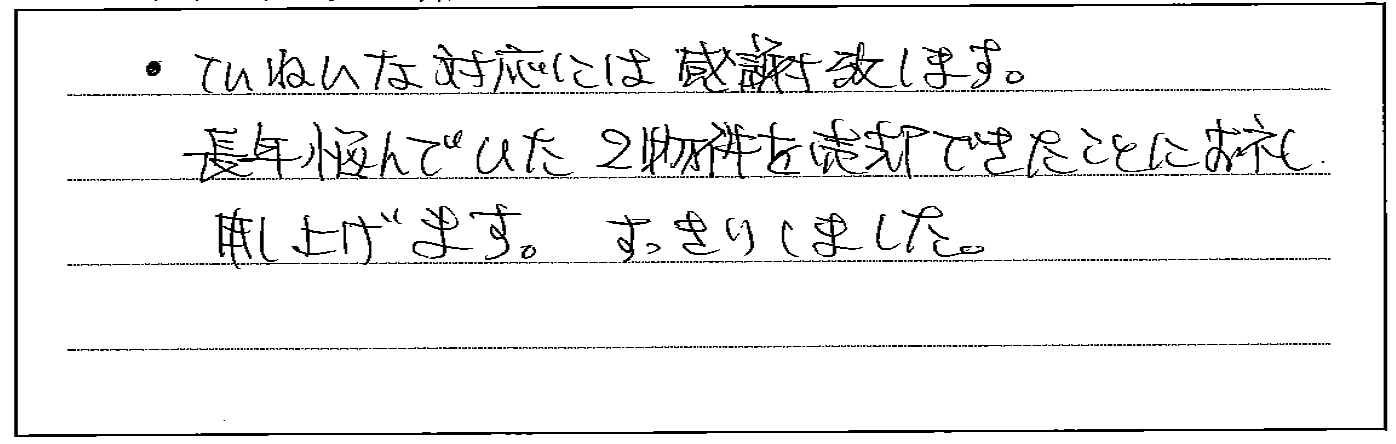 ・ていねいな対応には感謝致します。
長年悩んでいた2物件を売却できたことにお礼
申し上げます。すっきりしました。